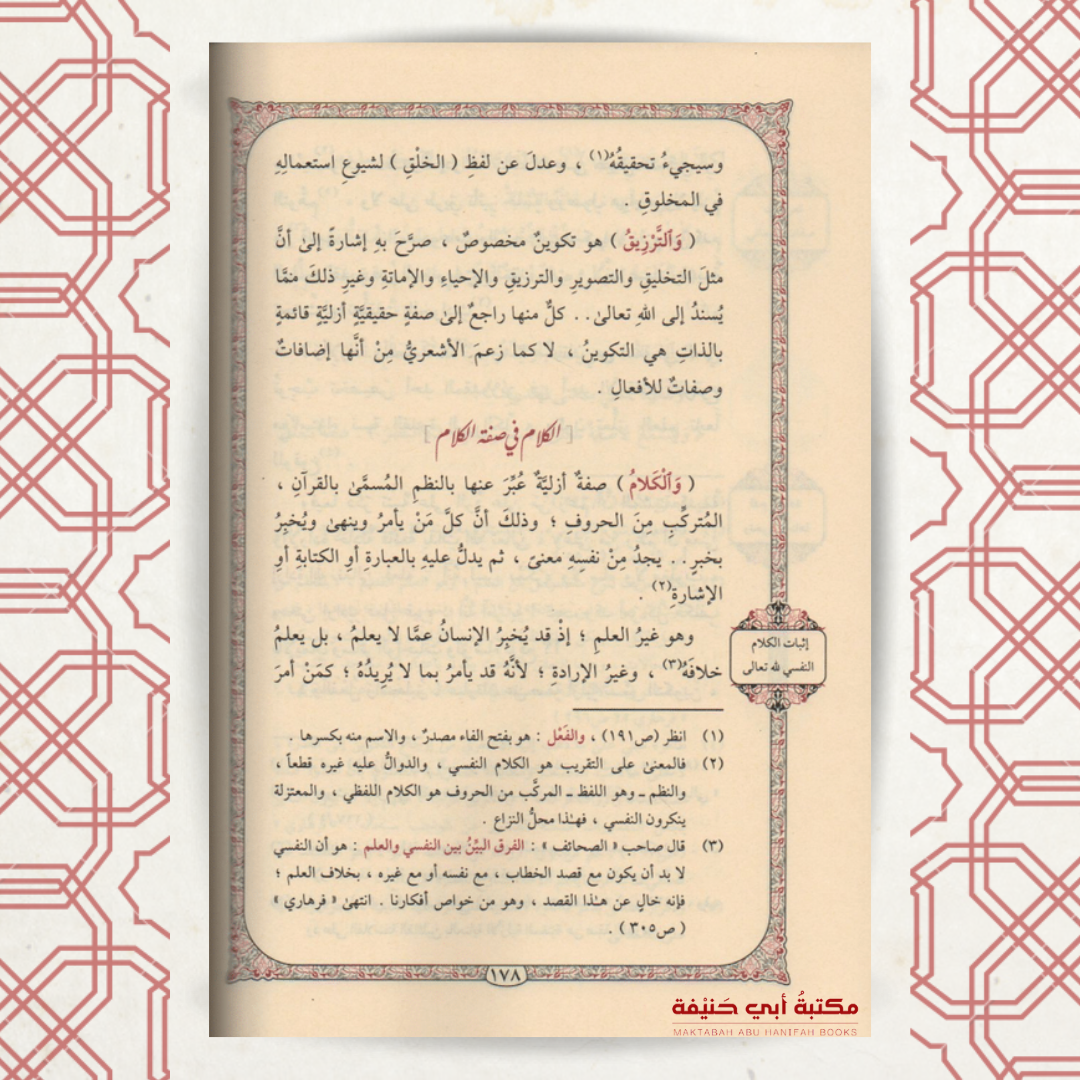 وسيجيءُ تحقيقُهُ(١) ، وعدلَ عن لفظِ ( الخلْقِ ) لشيوعِ استعمالِهِ
في المخلوقِ .
( وَٱلتَّرْزِيقُ ) هو تكوينٌ مخصوصٌ ، صرَّحَ بهِ إشارةً إلىٰ أنَّ
مثلَ التخليقِ والتصويرِ والترزيقِ والإحياءِ والإماتةِ وغيرِ ذلكَ ممَّا
يُسندُ إلى اللهِ تعالىٰ . . كلٌّ منها راجعٌ إلىٰ صفةٍ حقيقيَّةٍ أزليَّةٍ قائمةٍ
بالذاتِ هي التكوينُ ، لا كما زعمَ الأشعريُّ مِنْ أنَّها إضافاتٌ
وصفاتٌ للأفعالِ .
[ الكلام في صفة الكلام ]
( وَٱلْكَلَامُ ) صفةٌ أزليَّةٌ عُبِّرَ عنها بالنظمِ المُسمَّىٰ بالقرآنِ ،
المُتركِّبِ مِنَ الحروفِ ؛ وذلكَ أنَّ كلَّ مَنْ يأمرُ وينهىٰ ويُخبِرُ
بخبرٍ . . يجدُ مِنْ نفسِهِ معنىً ، ثم يدلُّ عليهِ بالعبارةِ أوِ الكتابةِ أوِ
الإشارةِ(٢) .
وهو غيرُ العلمِ ؛ إذْ قد يُخبِرُ الإنسانُ عمَّا لا يعلمُ ، بل يعلمُ
خلافَهُ(٣) ، وغيرُ الإرادةِ ؛ لأنَّهُ قد يأمرُ بما لا يُرِيدُهُ ؛ كمَنْ أمرَ
إثبات الكلام
النفسي لله تعالى
(١) انظر (ص١٩١) ، والفَعْل : هو بفتح الفاء مصدرٌ ، والاسم منه بكسرها .
(٢) فالمعنىٰ على التقريب هو الكلام النفسي ، والدوالُّ عليه غيره قطعاً ،
والنظم ـ وهو اللفظ ـ المركَّب من الحروف هو الكلام اللفظي ، والمعتزلة
ينكرون النفسي ، فهٰذا محلُّ النزاع .
(٣) قال صاحب « الصحائف » : الفرق البيِّنُ بين النفسي والعلم : هو أن النفسي
لا بد أن يكون مع قصد الخطاب ، مع نفسه أو مع غيره ، بخلاف العلم ؛
فإنه خالٍ عن هٰذا القصد ، وهو من خواص أفكارنا . انتهىٰ « فرهاري »
( ص٣٠٥ ) .
١٧٨
مكتبةُ أبي حَنيْفة
MAKTABAH ABU HANIFAH BOOKS